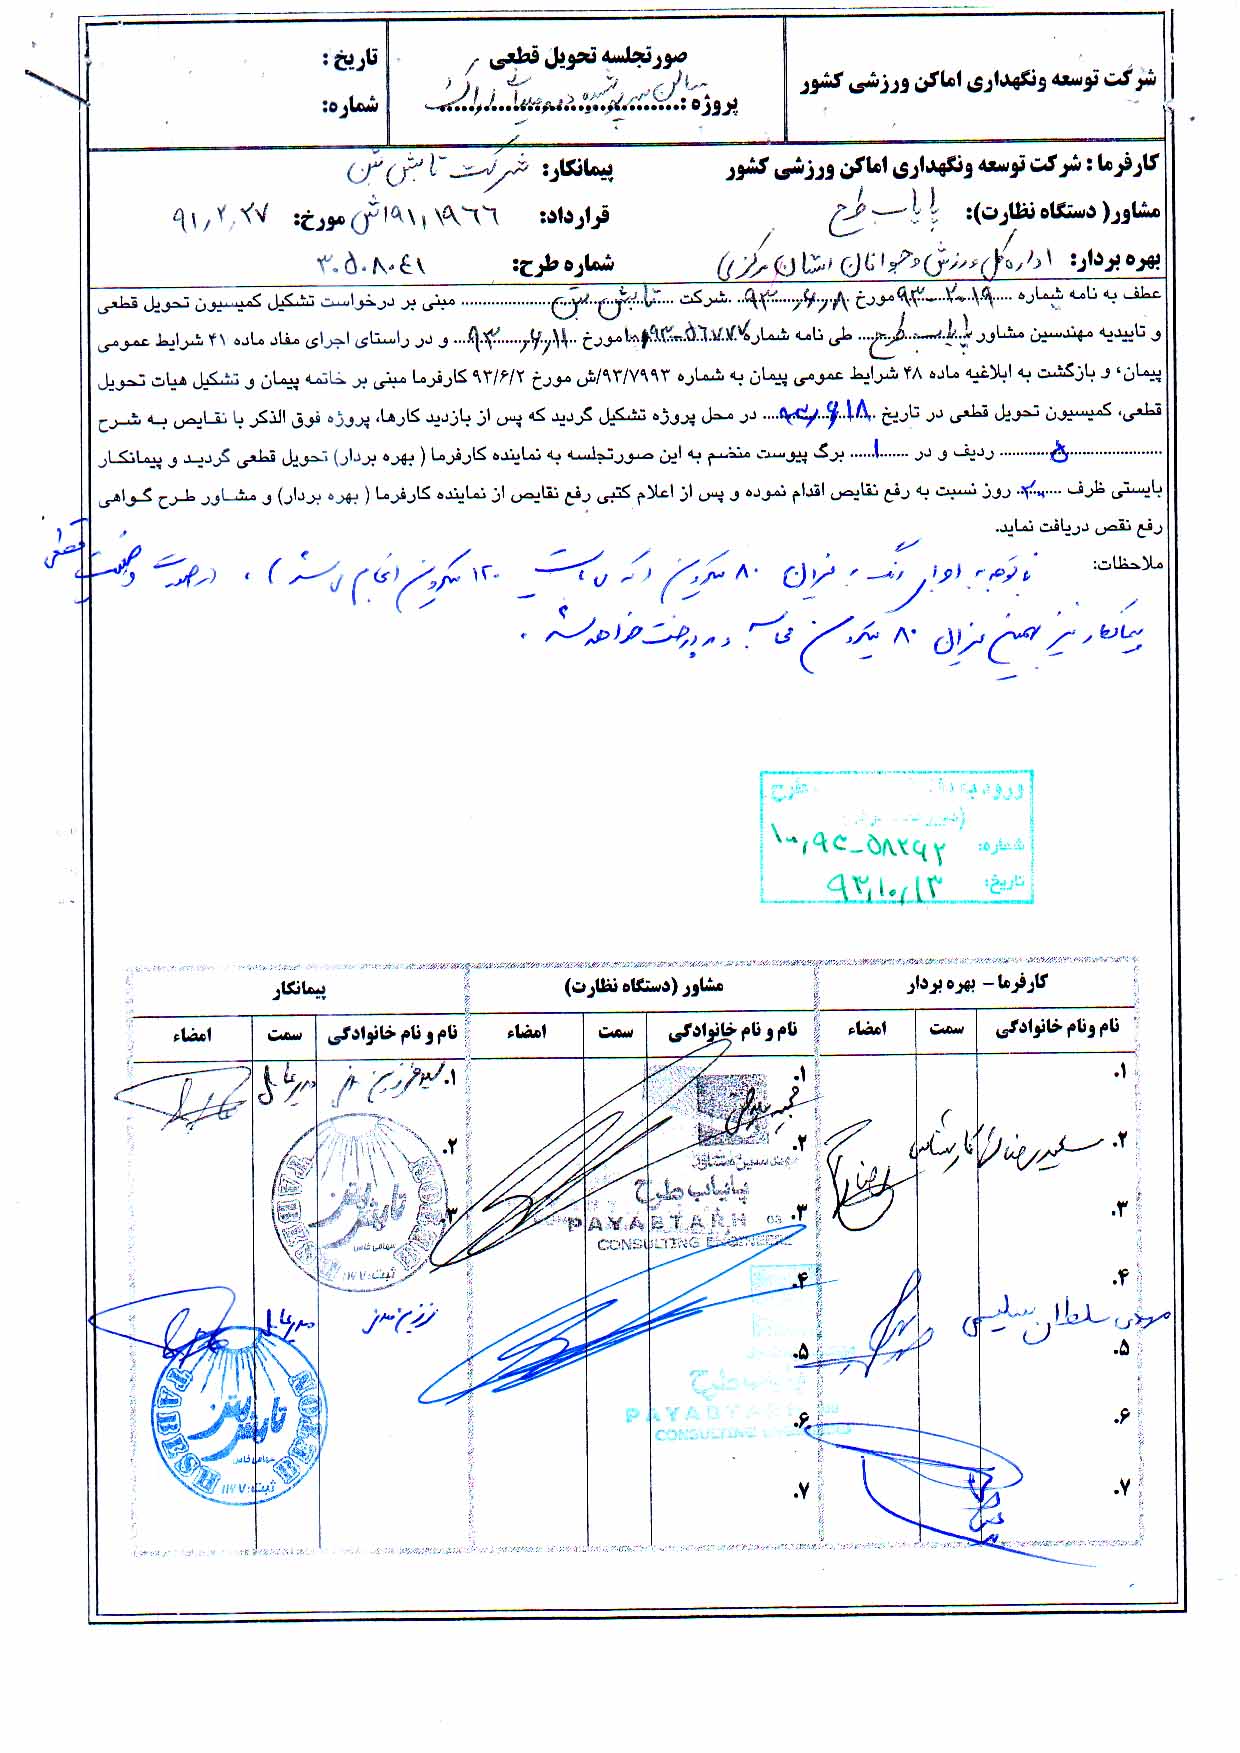 شرکت توسعه ونگهداری اماکن ورزشی کشور
صورتجلسه تحویل قطعی
پروژه : سالن سرپوشیده
تاریخ :
شماره:
کارفرما : شرکت توسعه ونگهداری اماکن ورزشی کشور پیمانکار: شرکت تابش بتن
مشاور( دستگاه نظارت): پایاب طرح قرارداد: ۹۱/۱۹۶۶/ش مورخ: ۹۱/۲/۲۷
بهره بردار: اداره کل ورزش و جوانان استان مرکزی شماره طرح: ۳۰۵۰۸۰۴۱
عطف به نامه شماره ۹۳-۲۰۱۹ مورخ ۹۳/۶/۸ شرکت تابش بتن مبنی بر درخواست تشکیل کمیسیون تحویل قطعی
و تاییدیه مهندسین مشاور پایاب طرح طی نامه شماره مورخ ۹۳/۶/۱۱ و در راستای اجرای مفاد ماده ۴۱ شرایط عمومی
پیمان، و بازگشت به ابلاغیه ماده ۴۸ شرایط عمومی پیمان به شماره ۹۳/۷۹۹۳/ش مورخ ۹۳/۶/۲ کارفرما مبنی بر خاتمه پیمان و تشکیل هیات تحویل
قطعی، کمیسیون تحویل قطعی در تاریخ ۹۳/۶/۱۸ در محل پروژه تشکیل گردید که پس از بازدید کارها، پروژه فوق الذکر با نقایص به شرح
۵ ردیف و در ۱ برگ پیوست منضم به این صورتجلسه به نماینده کارفرما ( بهره بردار) تحویل قطعی گردید و پیمانکار
بایستی ظرف ۲۰ روز نسبت به رفع نقایص اقدام نموده و پس از اعلام کتبی رفع نقایص از نماینده کارفرما ( بهره بردار) و مشاور طرح گواهی
رفع نقص دریافت نماید.
ملاحظات: با توجه به اجرای رنگ به میزان ۸۰ میکرون ( که می بایست ۱۲۰ میکرون انجام می شد ) ، در صورت وضعیت قطعی
پیمانکار نیز همین میزان ۸۰ میکرون محاسبه و پرداخت خواهد شد .
ورود به طرح
شماره: ۱۰۰/۹۳-۵۸۲۹۲
تاریخ: ۹۳/۱۰/۱۳
کارفرما – بهره بردار مشاور (دستگاه نظارت) پیمانکار
نام ونام خانوادگی سمت امضاء نام و نام خانوادگی سمت امضاء نام و نام خانوادگی سمت امضاء
۱. ۱. ۱. مدیرعامل
۲. کارشناس ۲. ۲.
مهندسین مشاور
پایاب طرح
۳. ۳. ۳.
PAYABTARH
CONSULTING ENGINEERS
تابش بتن
سهامی خاص
TABESH BOTON
۴. ۴.
مهدی سلطان سلیمی
مدیرعامل
۵. ۵.
پایاب طرح
PAYABTARH
CONSULTING ENGINEERS
۶. ۶.
تابش بتن
سهامی خاص
TABESH BOTON
۷. ۷.